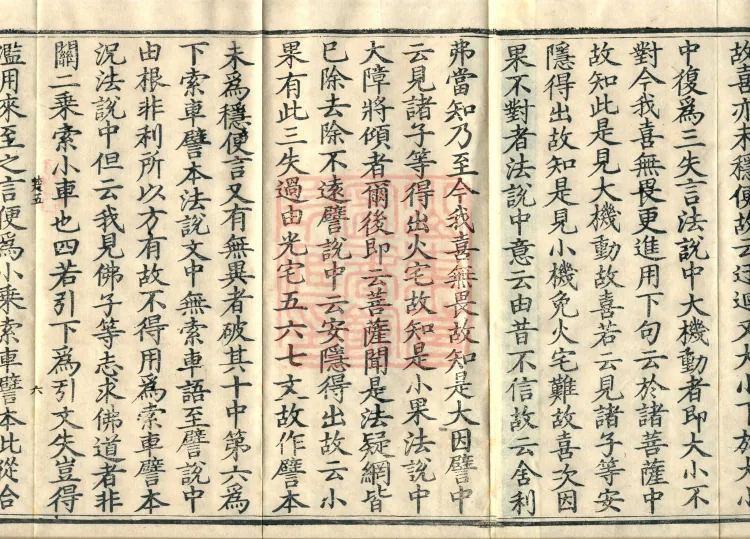 故喜亦未穩便故云
中復爲三失言法說中大機動者即大小不
對今我喜無畏更進用下句云於諸菩薩中
故知此是見大機動故喜若云見諸子等安
隱得出故知是見小機免火宅難故喜次因
果不對者法說中意云由昔不信故云舍利
弗當知乃至今我喜無畏故知是大因譬中
云見諸子等得出火宅故知是小果法說中
大障將傾者爾後即云菩薩聞是法疑網皆
已除去除不遠譬說中云安隱得出故云小
果有此三失過由光宅五六七文故作譬本
未爲穩便言又有無異者破其十中第六爲
下索車譬本法說文中無索車語至譬說中
由根非利所以方有故不得用爲索車譬本
況法說中但云我見佛子等志求佛道者非
關二乘索小車也四若引下爲引文失豈得
五 六
濫用來至之言便爲小乘索車譬本此從合